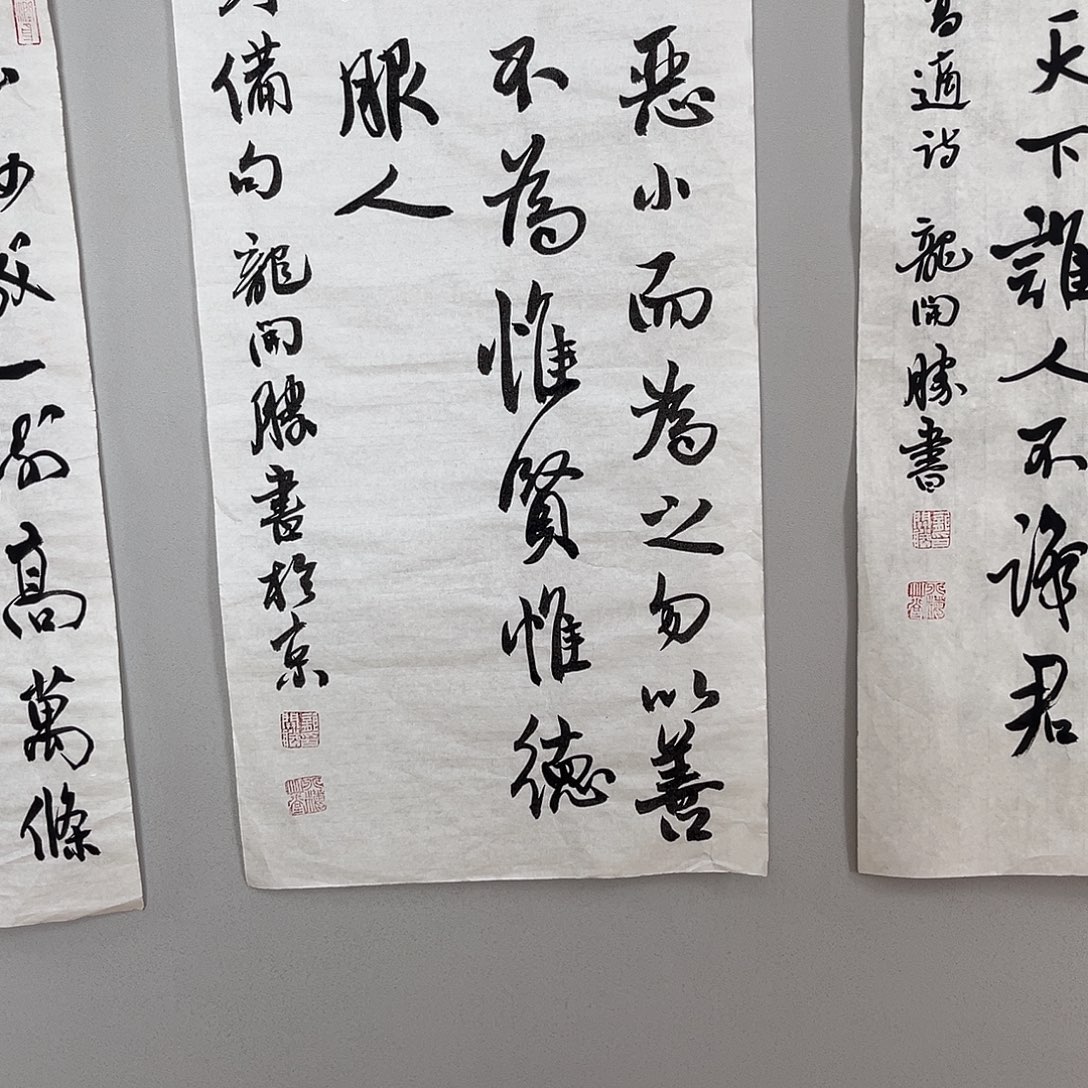 天下誰人不識君
高適詩 龍開勝書
惡小而為之勿以善
不為惟賢惟德
服人
備句 龍開勝書於京
妝成一樹高萬條